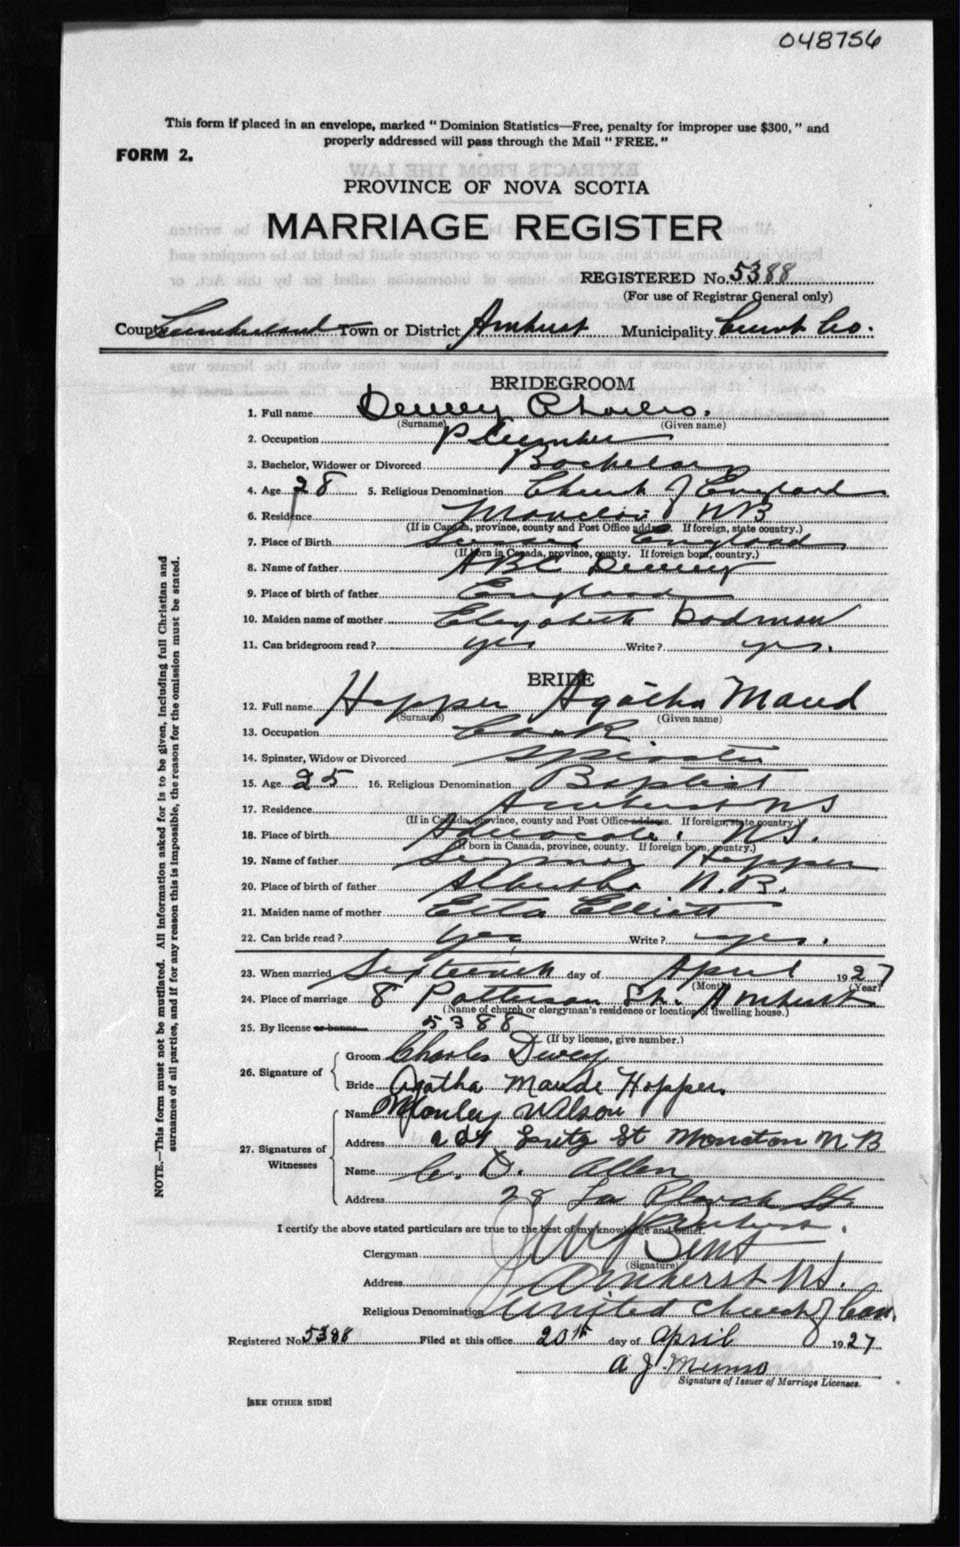 048756
This form if placed in an envelope, marked "Dominion Statistics—Free, penalty for improper use $300," and
properly addressed will pass through the Mail "FREE."
FORM 2.
PROVINCE OF NOVA SCOTIA
MARRIAGE REGISTER
REGISTERED No. 5388
(For use of Registrar General only)
County Cumberland Town or District Amherst Municipality Cumb Co.
BRIDEGROOM
1. Full name Dewey Charles.
(Surname) (Given name)
2. Occupation Plumber
3. Bachelor, Widower or Divorced Bachelor
4. Age 28 5. Religious Denomination Church of England
6. Residence Moncton NB
(If in Canada, province, county and Post Office address. If foreign, state country.)
7. Place of Birth Sussex England
(If born in Canada, province, county. If foreign born, country.)
8. Name of father Dewey
9. Place of birth of father England
10. Maiden name of mother Elizabeth Dodman
11. Can bridegroom read? yes Write? yes.
BRIDE
12. Full name Hopper Agatha Maud
(Surname) (Given name)
13. Occupation Cook
14. Spinster, Widow or Divorced Spinster
15. Age 25 16. Religious Denomination Baptist
17. Residence Amherst NS
(If in Canada, province, county and Post Office address. If foreign, state country.)
18. Place of birth Advocate, N.S.
(If born in Canada, province, county. If foreign born, country.)
19. Name of father Seymour Hopper
20. Place of birth of father N.B.
21. Maiden name of mother Etta Elliott
22. Can bride read? yes Write? yes.
23. When married Sixteenth day of April 1927
(Month) (Year)
24. Place of marriage 8 Patterson St. Amherst
(Name of church or clergyman's residence or location of dwelling house.)
25. By license or banns 5388
(If by license, give number.)
26. Signature of
Groom Charles Dewey
Bride Agatha Maude Hopper.
27. Signatures of Witnesses
Name Manley Wilson
Address St Moncton N B
Name C. D. Allen
Address 28 La Planch St.
Amherst.
I certify the above stated particulars are true to the best of my knowledge and belief.
Clergyman Bent
(Signature)
Address Amherst N.S.
Religious Denomination United Church of Can.
Registered No. 5388 Filed at this office 20th day of April 1927
A J. Munro
Signature of Issuer of Marriage Licenses.
[SEE OTHER SIDE]
NOTE.—This form must not be mutilated. All information asked for is to be given, including full Christian and
surnames of all parties, and if for any reason this is impossible, the reason for the omission must be stated.